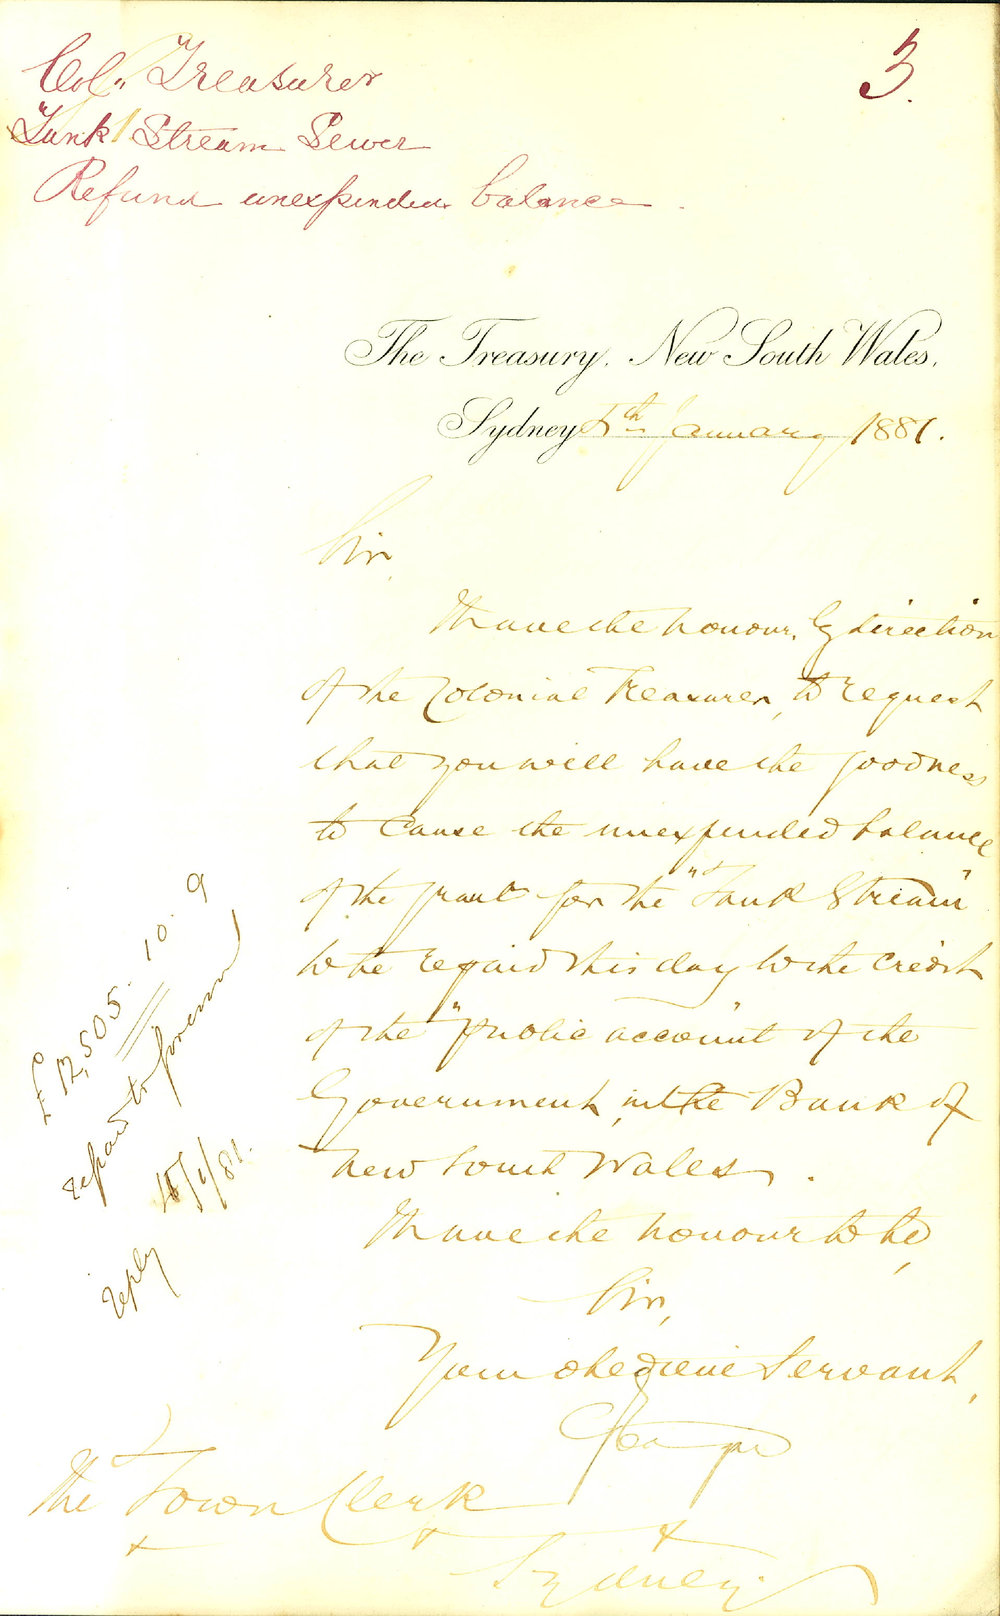 Col. Treasurer
3.
"Tank Stream Sewer
Refund unexpended balance.
The Treasury, New South Wales,
Sydney 5th January 1881.
Sir,
I have the honour, by direction
of the Colonial Treasurer, to request
that you will have the goodness
to cause the unexpended balance
of the grant for the "Tank Stream"
to be repaid this day to the credit
of the "public account" of the
Government, in the Bank of
New South Wales.
I have the honour to be,
Sir,
Your obedient Servant,
The Town Clerk
Sydney.
£12,505. 10. 9
repaid to
reply /1/81.